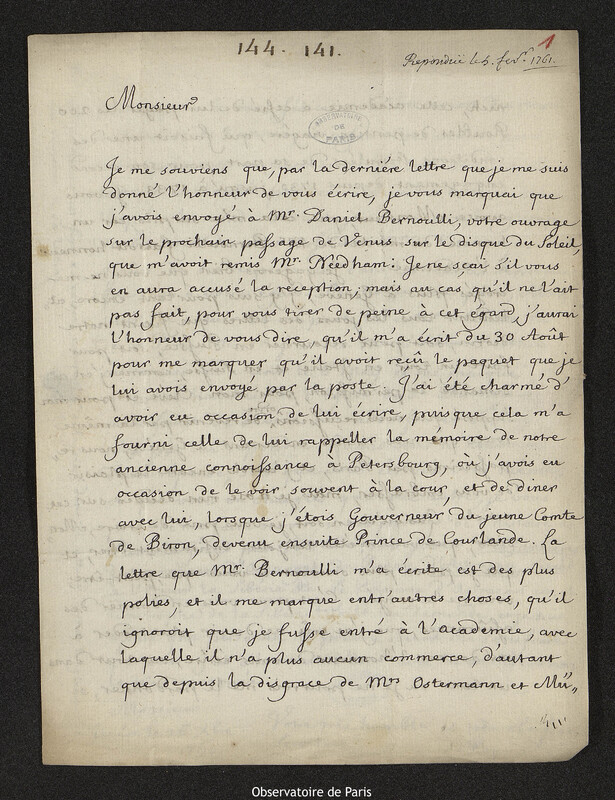 144. 141.
1
Repondüe le 5. fevr. 1761.
Monsieur
OBSERVATOIRE
DE
PARIS
Je me souviens que, par la derniére lettre que je me suis
donné l'honneur de vous écrire, je vous marquai que
j'avois envoyé à Mr. Daniel Bernoulli, votre ouvrage
sur le prochain passage de Venus sur le disque du Soleil,
que m'avoit remis Mr. Needham: Je ne scai s'il vous
en aura accusé la réception; mais au cas, qu'il ne l'ait
pas fait, pour vous tirer de peine à cet égard, j'aurai
l'honneur de vous dire, qu'il m'a écrit du 30 Août
pour me marquer qu'il avoit reçû le paquet que je
lui avois envoyé par la poste. J'ai été charmé d'
avoir eu occasion de lui écrire, puisque cela m'a
fourni celle de lui rappeller la mémoire de notre
ancienne connoissance à Petersbourg, où j'avois eu
occasion de le voir souvent à la cour, et de diner
avec lui, lorsque j'étois Gouverneur du jeune Comte
de Biron, devenu ensuite Prince de Courlande. La
lettre que Mr. Bernoulli m'a écrite est des plus
polies, et il me marque entr'autres choses, qu'il
ignoroit que je fusse entré à l'Academie, avec
laquelle il n'a plus aucun commerce, d'autant
que depuis la disgrace de Mrs Ostermann et Mü„
Observatoire de Paris